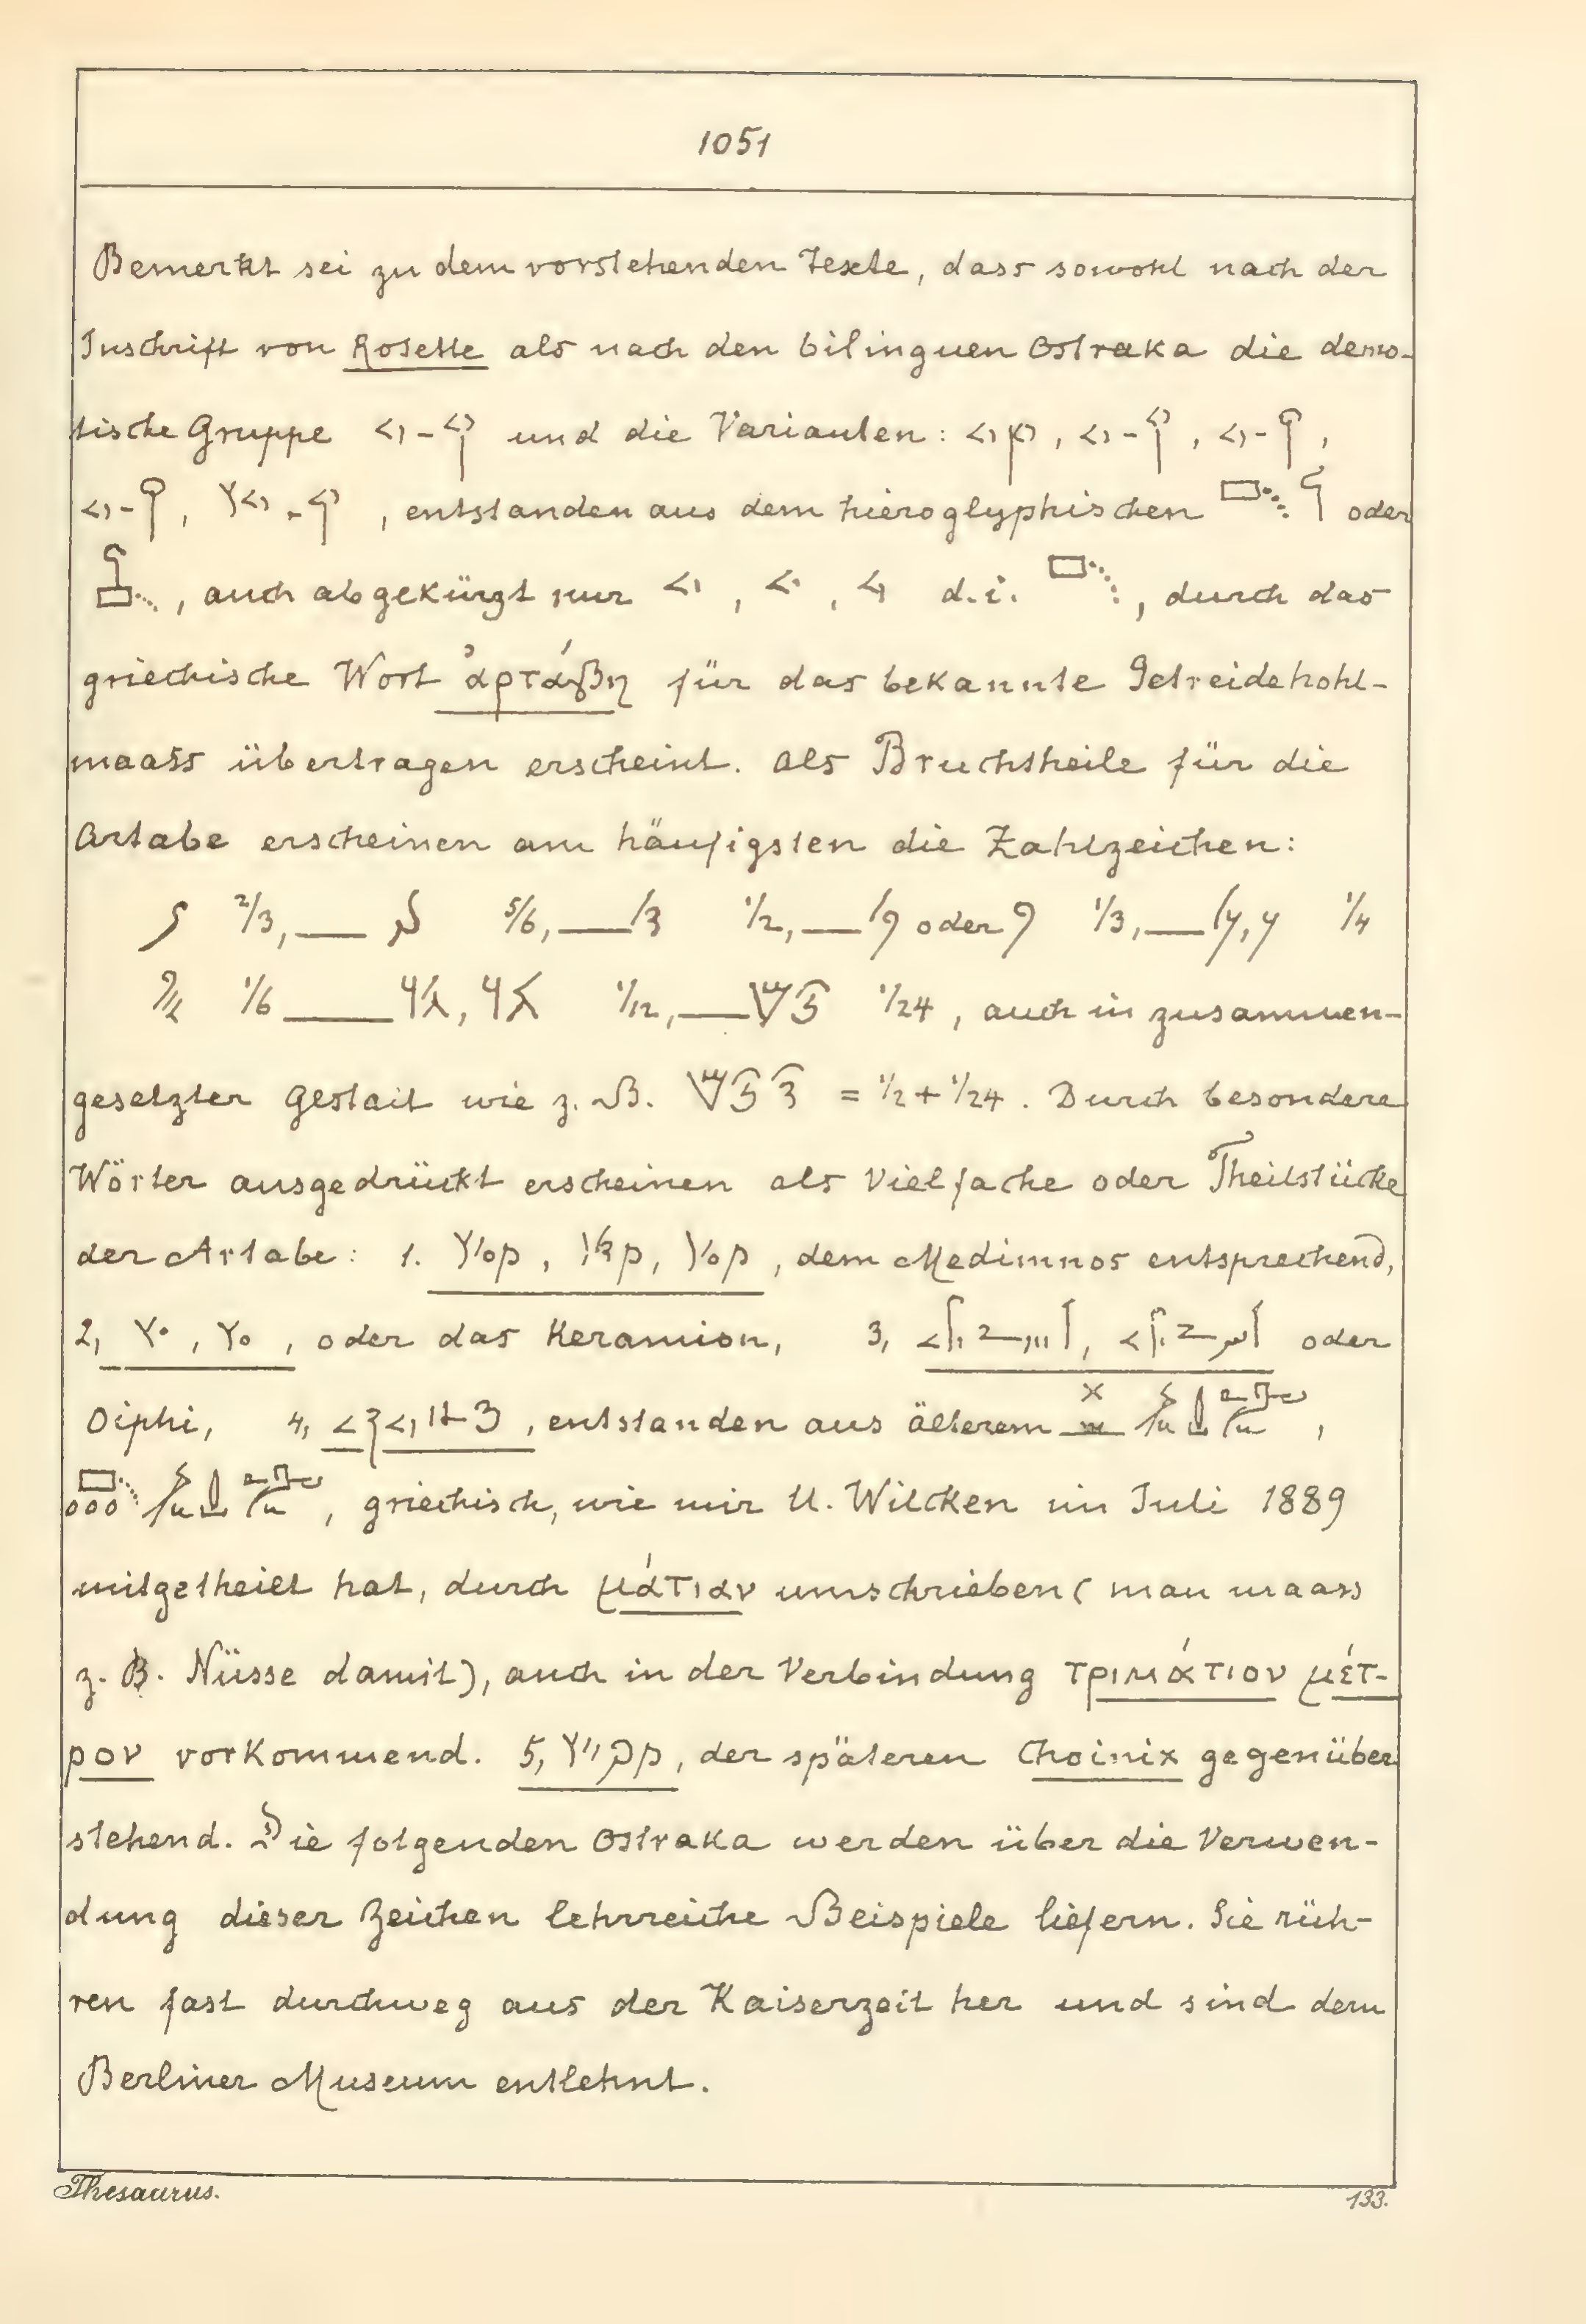 1051
Bemerkt sei zu dem vorstehenden Texte, dass sowohl nach der
Inschrift von Rosette als nach den bilinguen Ostraka die demo-
tische Gruppe und die Varianten: , , ,
, , entstanden aus dem hieroglyphischen oder
, auch abgekürzt nur , , d.i. , durch das
griechische Wort ἀρτάβη für das bekannte Getreidehohl-
maass übertragen erscheint. Als Bruchtheile für die
Artabe erscheinen am häufigsten die Zahlzeichen:
2/3, 5/6, 1/2, oder 1/3, 1/4
1/6 1/12, 1/24, auch in zusammen-
gesetzter Gestalt wie z. B. = 1/2 + 1/24. Durch besondere
Wörter ausgedrückt erscheinen als Vielfache oder Theilstücke
der Artabe: 1. , , , dem Medimnos entsprechend,
2, , , oder das Keramion, 3, , oder
Oiphi, 4, , entstanden aus älterem ,
, griechisch, wie mir U. Wilcken im Juli 1889
mitgetheilt hat, durch μάτιαν umschrieben (man maass
z. B. Nüsse damit), auch in der Verbindung τριμάτιον μέτ-
ρον vorkommend. 5, , der späteren Choinix gegenüber
stehend. Die folgenden Ostraka werden über die Verwen-
dung dieser Zeichen lehrreiche Beispiele liefern. Sie rüh-
ren fast durchweg aus der Kaiserzeit her und sind dem
Berliner Museum entlehnt.
Thesaurus. 133.